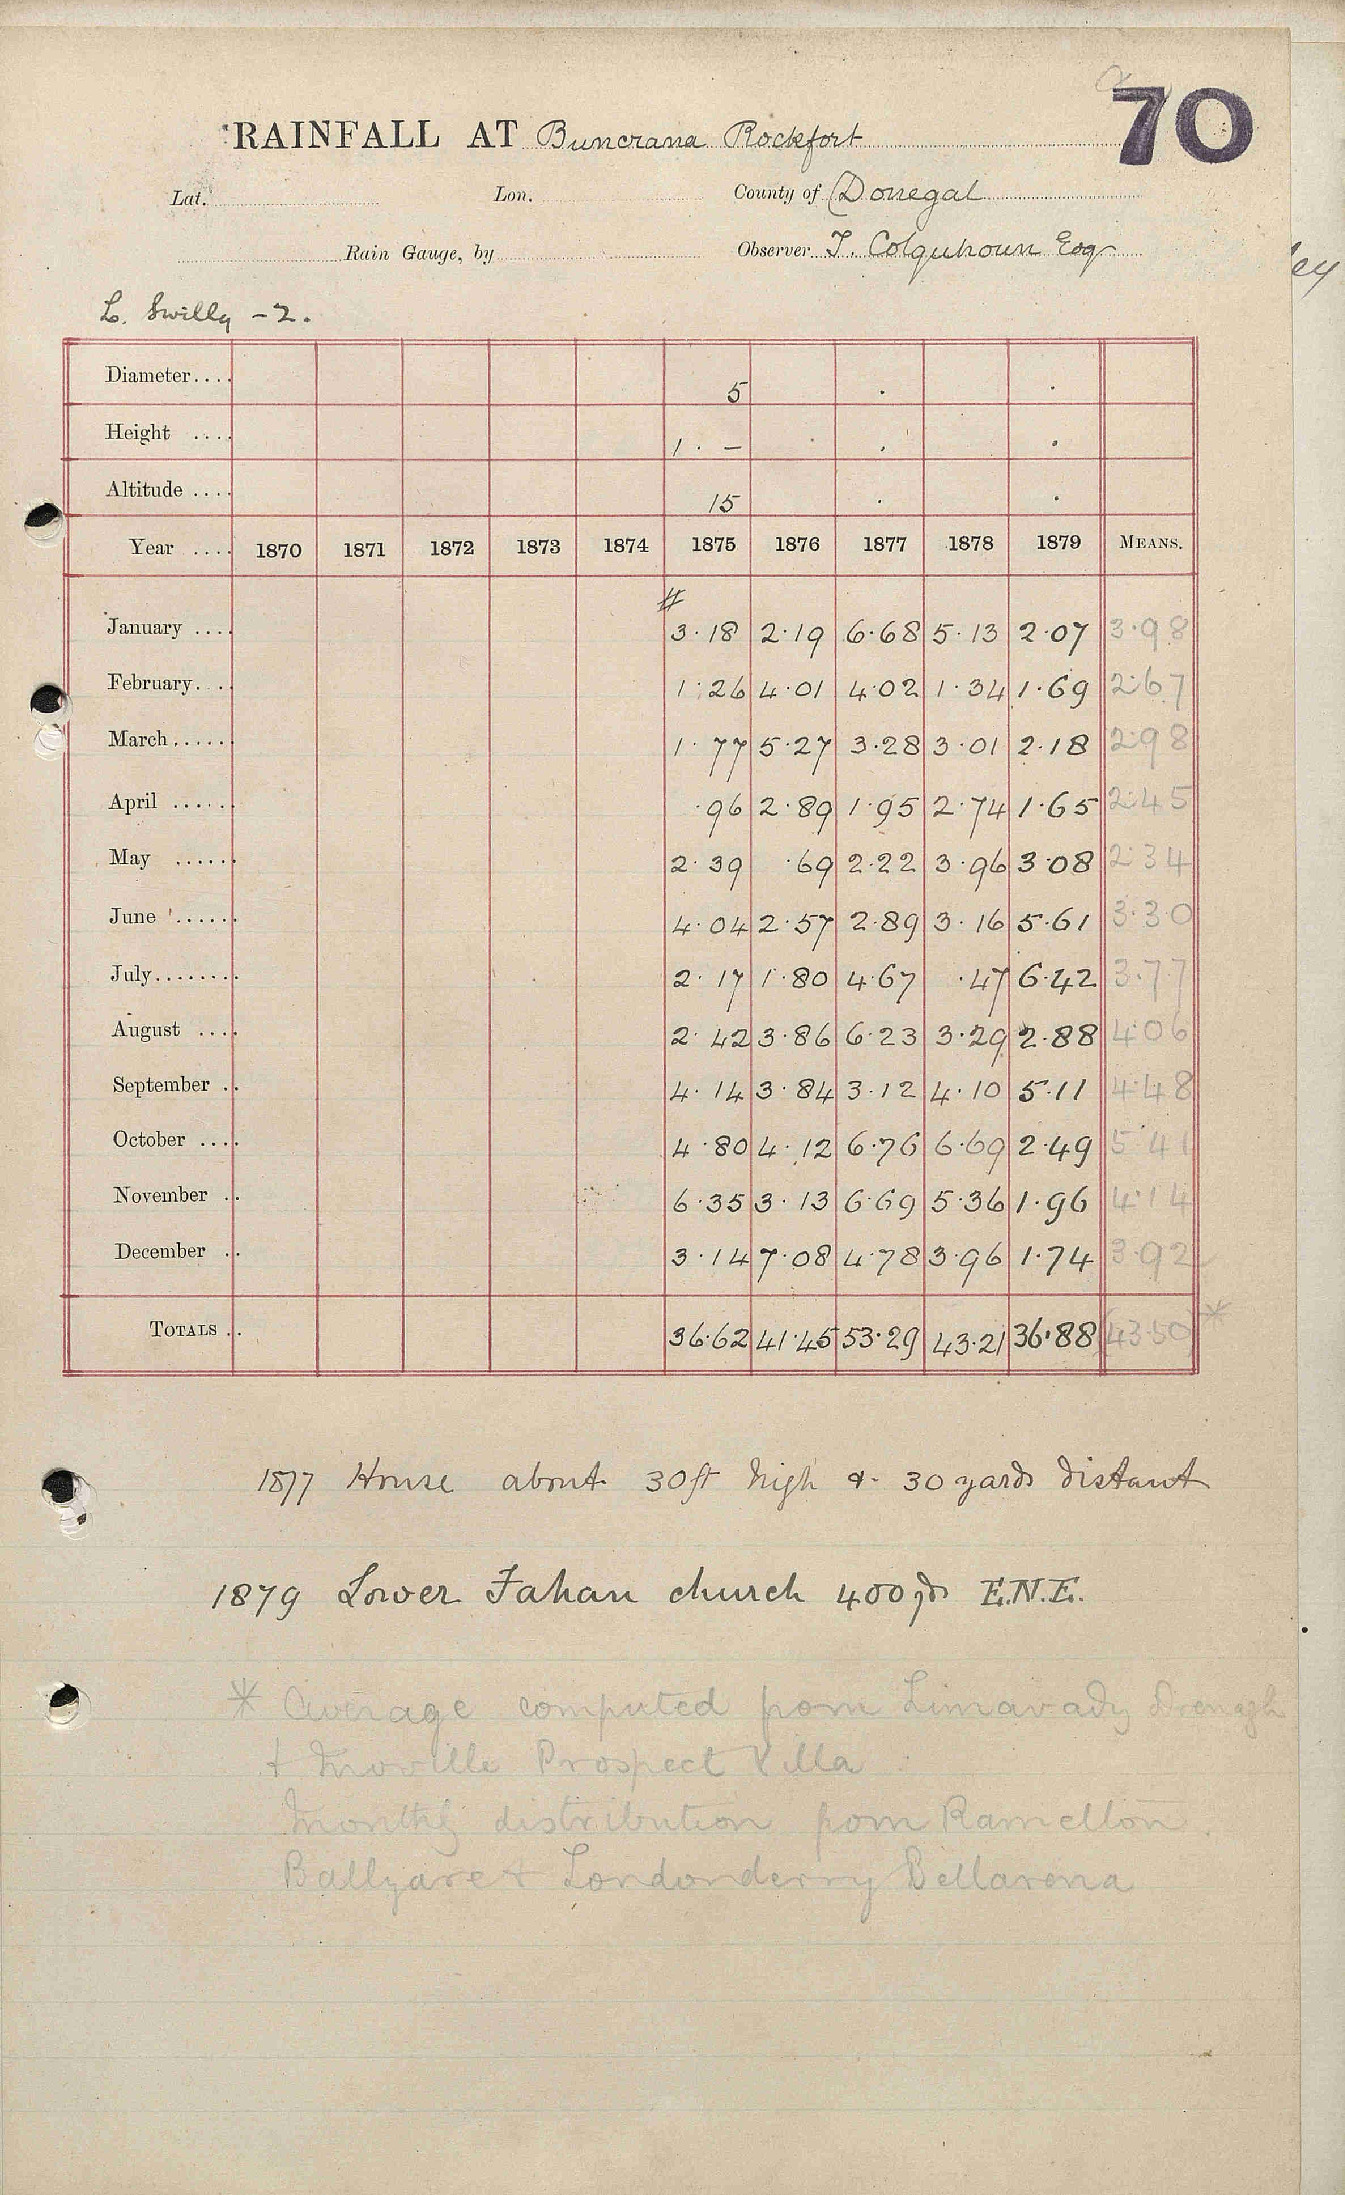 70
RAINFALL AT Buncrana Rockfort
Lat. Lon. County of Donegal
Rain Gauge, by Observer T. Colquhoun Esq
ey
L. Swilly - 2.
Diameter.... 5 . .
Height .... 1 . - . . .
Altitude .... 15 . .
Year .... 1870 1871 1872 1873 1874 1875 1876 1877 1878 1879 MEANS.
#
January .... 3.18 2.19 6.68 5.13 2.07 3.98
February.... 1.26 4.01 4.02 1.34 1.69 2.67
March...... 1.77 5.27 3.28 3.01 2.18 2.98
April ...... .96 2.89 1.95 2.74 1.65 2.45
May ...... 2.39 .69 2.22 3.96 3.08 2.34
June ...... 4.04 2.57 2.89 3.16 5.61 3.30
July........ 2.17 1.80 4.67 .47 6.42 3.77
August .... 2.42 3.86 6.23 3.29 2.88 4.06
September .. 4.14 3.84 3.12 4.10 5.11 4.48
October .... 4.80 4.12 6.76 6.69 2.49 5.41
November .. 6.35 3.13 6.69 5.36 1.96 4.14
December .. 3.14 7.08 4.78 3.96 1.74 3.92
TOTALS .. 36.62 41.45 53.29 43.21 36.88 (43.50)*
1877 House about 30ft high & 30 yards distant
1879 Lower Fahan church 400 yds E.N.E.
* Average computed from Limavady Drenagh
+ Moville Prospect Villa
Monthly distribution from Ramelton
Ballyare + Londonderry Bellarena